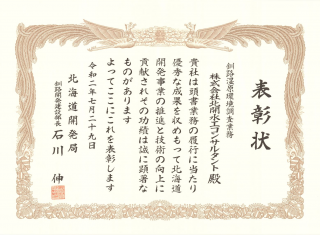 表彰状
釧路湿原環境調査業務
株式会社北開水工コンサルタント殿
貴社は頭書業務の履行に当たり
優秀な成果を収めもって北海道
開発事業の推進と技術の向上に
貢献されその功績は誠に顕著な
ものがあります
よってここにこれを表彰します
令和二年七月二十九日
北海道開発局
釧路開発建設部長 石川 伸